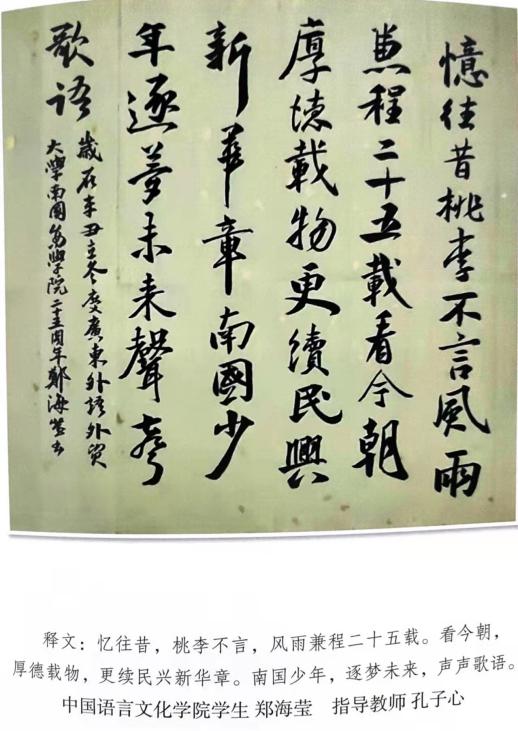 憶往昔桃李不言風雨
兼程二十五載看今朝
厚德載物更續民興
新華章南國少
年逐夢未来聲聲
歌语
歲在辛丑立冬慶廣東外語外貿
大學南國商學院二十五周年鄭海瑩書
释文：忆往昔，桃李不言，风雨兼程二十五载。看今朝，
厚德载物，更续民兴新华章。南国少年，逐梦未来，声声歌语。
中国语言文化学院学生 郑海莹　指导教师 孔子心